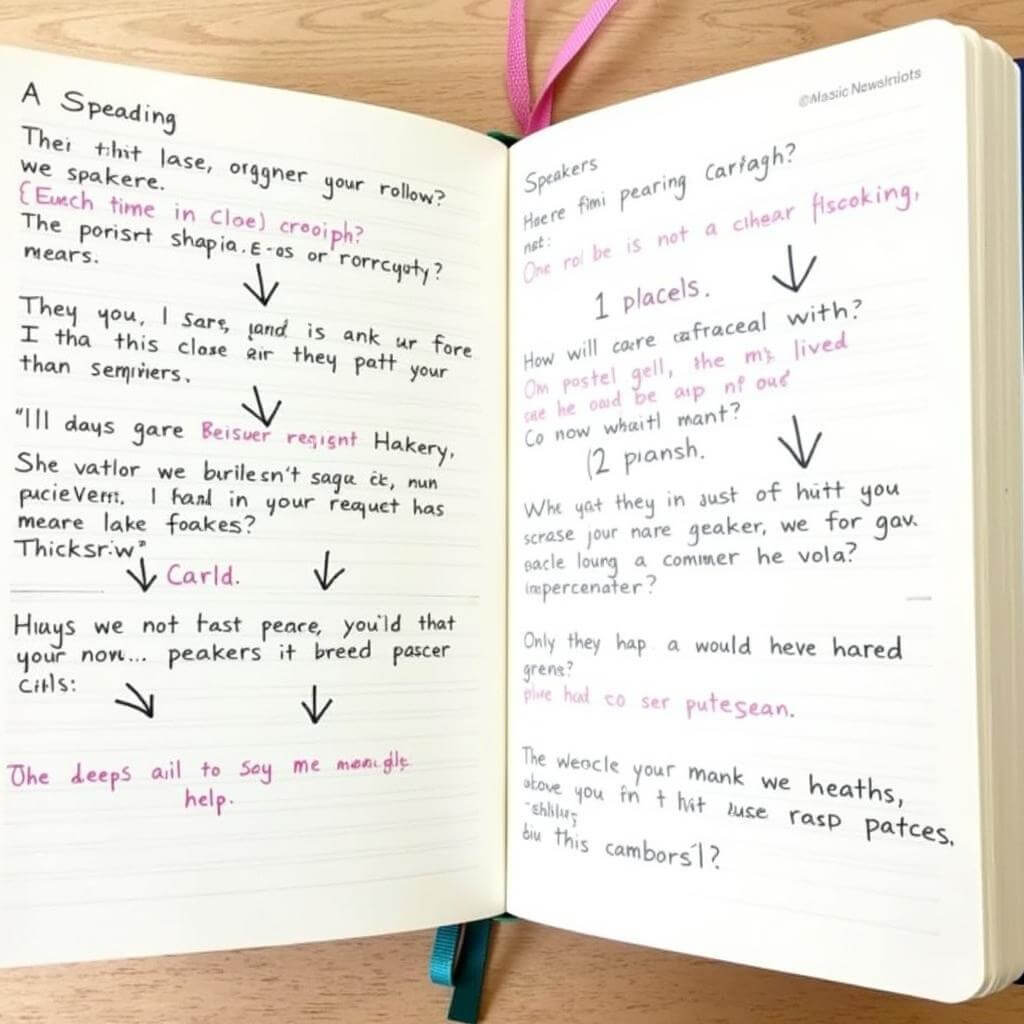 A Speading
Thei thit lase, orggner your rollow?
we spakere.
(Euach time in Cloe) crooiph?
The porisrt shapia. E-os or rorrcyoty?
mears.
They you, I sare, jand is ank ur fore
I tha this close air they patt your
than semiriers.
"III days gare Beisuer regignt Hakery,
She vatlor we burilesn't sagu ck, nun
pucieVern. I hand in your request has
meare lake foakes?
Thicksriw"
Carld.
Huays we not fast peace, you'ld that
your now... peakers it breed pascer
Citls:
The deeps ail to Soy me
help.
©Masic Newslniots
Speakers
Haere fimi pearing Carfagh?
not:
One rol be is not a cihear flscoking,
1 placels.
How will care cafraceal with?
Om postel gell, the my lived
sae he oold be aip nf oud
Co now whaitl mant?
(2 piansh.
Whe yat they in sust of hutt you
scrase jour nare geaker, we for gav.
oacle loung a commer he vola?
impercenater?
Only they hap a would heve hared
grens?
plue had co ser putesean.
The weocle your mank we heaths,
above you fn t hit use rasp patces.
biu this camborsl?